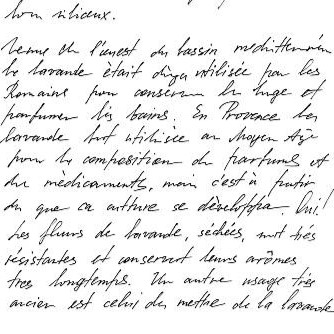 bon silicieux.
Venue de l'ouest du bassin méditerranéen
la lavande était déja utilisée par les
Romains pour conserver le linge et
parfumer les bains. En Provence la
lavande fut utilisée au Moyen Age
pour la composition de parfums et
de médicaments, mais c'est à partir
du que ca culture se développa. Oui!
Les fleurs de lavande, séchées, sont très
résistantes et conservent leurs arômes
tres longtemps. Un autre usage très
ancien est celui de mettre de la lavande